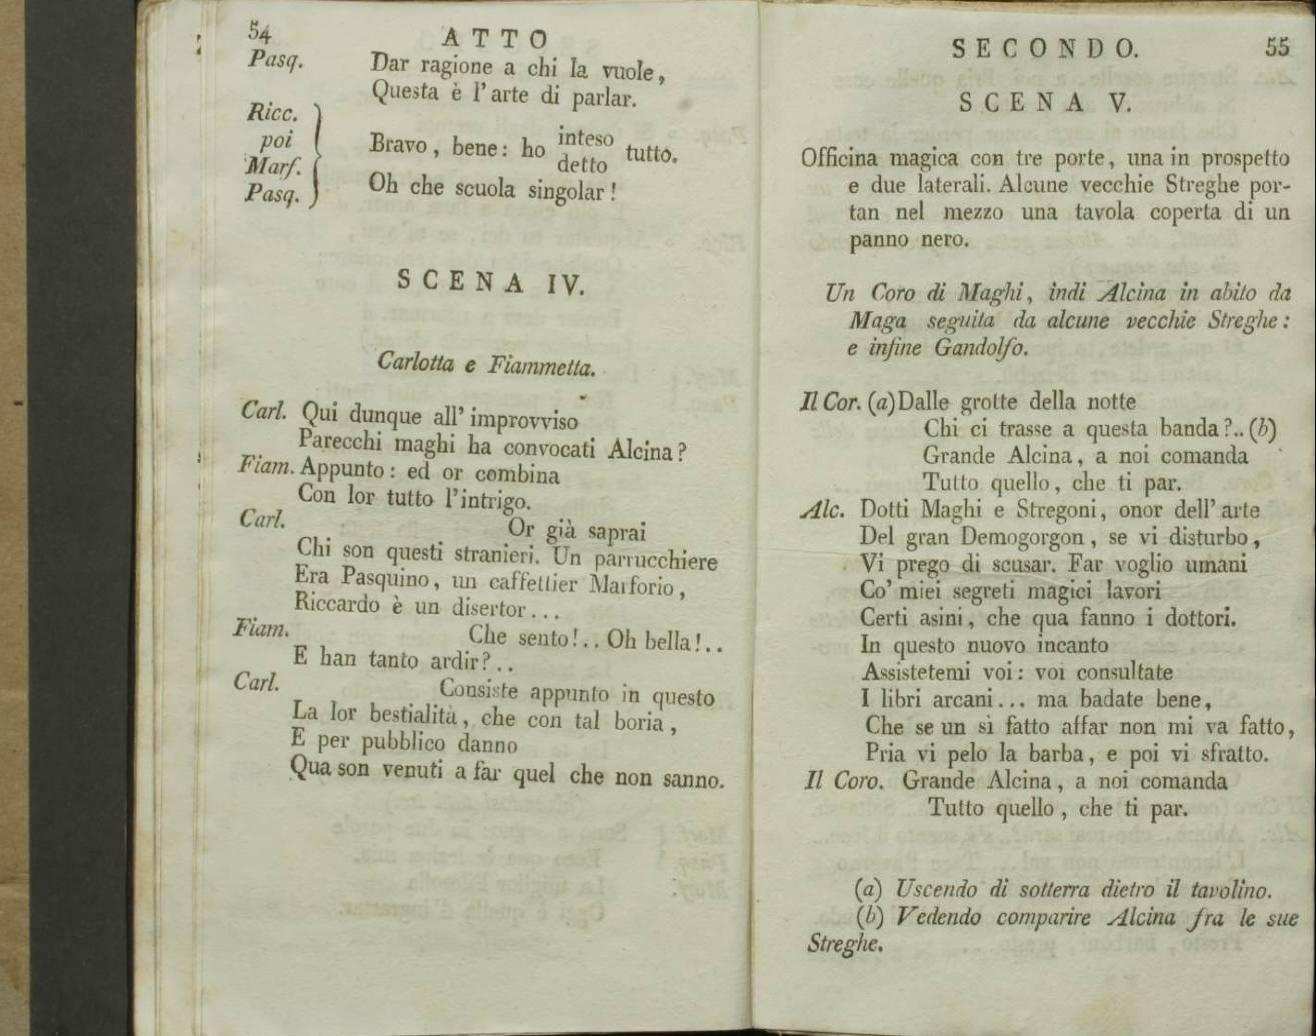 54
ATTO
Pasq. Dar ragione a chi la vuole,
Questa è l'arte di parlar.
Ricc.
poi
Marf.
Pasq.
Bravo, bene: ho inteso tutto.
detto
Oh che scuola singolar!
SCENA IV.
Carlotta e Fiammetta.
Carl. Qui dunque all'improvviso
Parecchi maghi ha convocati Alcina?
Fiam. Appunto: ed or combina
Con lor tutto l'intrigo.
Carl. Or già saprai
Chi son questi stranieri. Un parrucchiere
Era Pasquino, un caffettier Marforio,
Riccardo è un disertor...
Fiam. Che sento!.. Oh bella!..
E han tanto ardir?..
Carl. Consiste appunto in questo
La lor bestialità, che con tal boria,
E per pubblico danno
Qua son venuti a far quel che non sanno.
SECONDO. 55
SCENA V.
Officina magica con tre porte, una in prospetto
e due laterali. Alcune vecchie Streghe por-
tan nel mezzo una tavola coperta di un
panno nero.
Un Coro di Maghi, indi Alcina in abito da
Maga seguita da alcune vecchie Streghe:
e infine Gandolfo.
Il Cor. (a) Dalle grotte della notte
Chi ci trasse a questa banda?.. (b)
Grande Alcina, a noi comanda
Tutto quello, che ti par.
Alc. Dotti Maghi e Stregoni, onor dell'arte
Del gran Demogorgon, se vi disturbo,
Vi prego di scusar. Far voglio umani
Co' miei segreti magici lavori
Certi asini, che qua fanno i dottori.
In questo nuovo incanto
Assistetemi voi: voi consultate
I libri arcani... ma badate bene,
Che se un sì fatto affar non mi va fatto,
Pria vi pelo la barba, e poi vi sfratto.
Il Coro. Grande Alcina, a noi comanda
Tutto quello, che ti par.
(a) Uscendo di sotterra dietro il tavolino.
(b) Vedendo comparire Alcina fra le sue
Streghe.